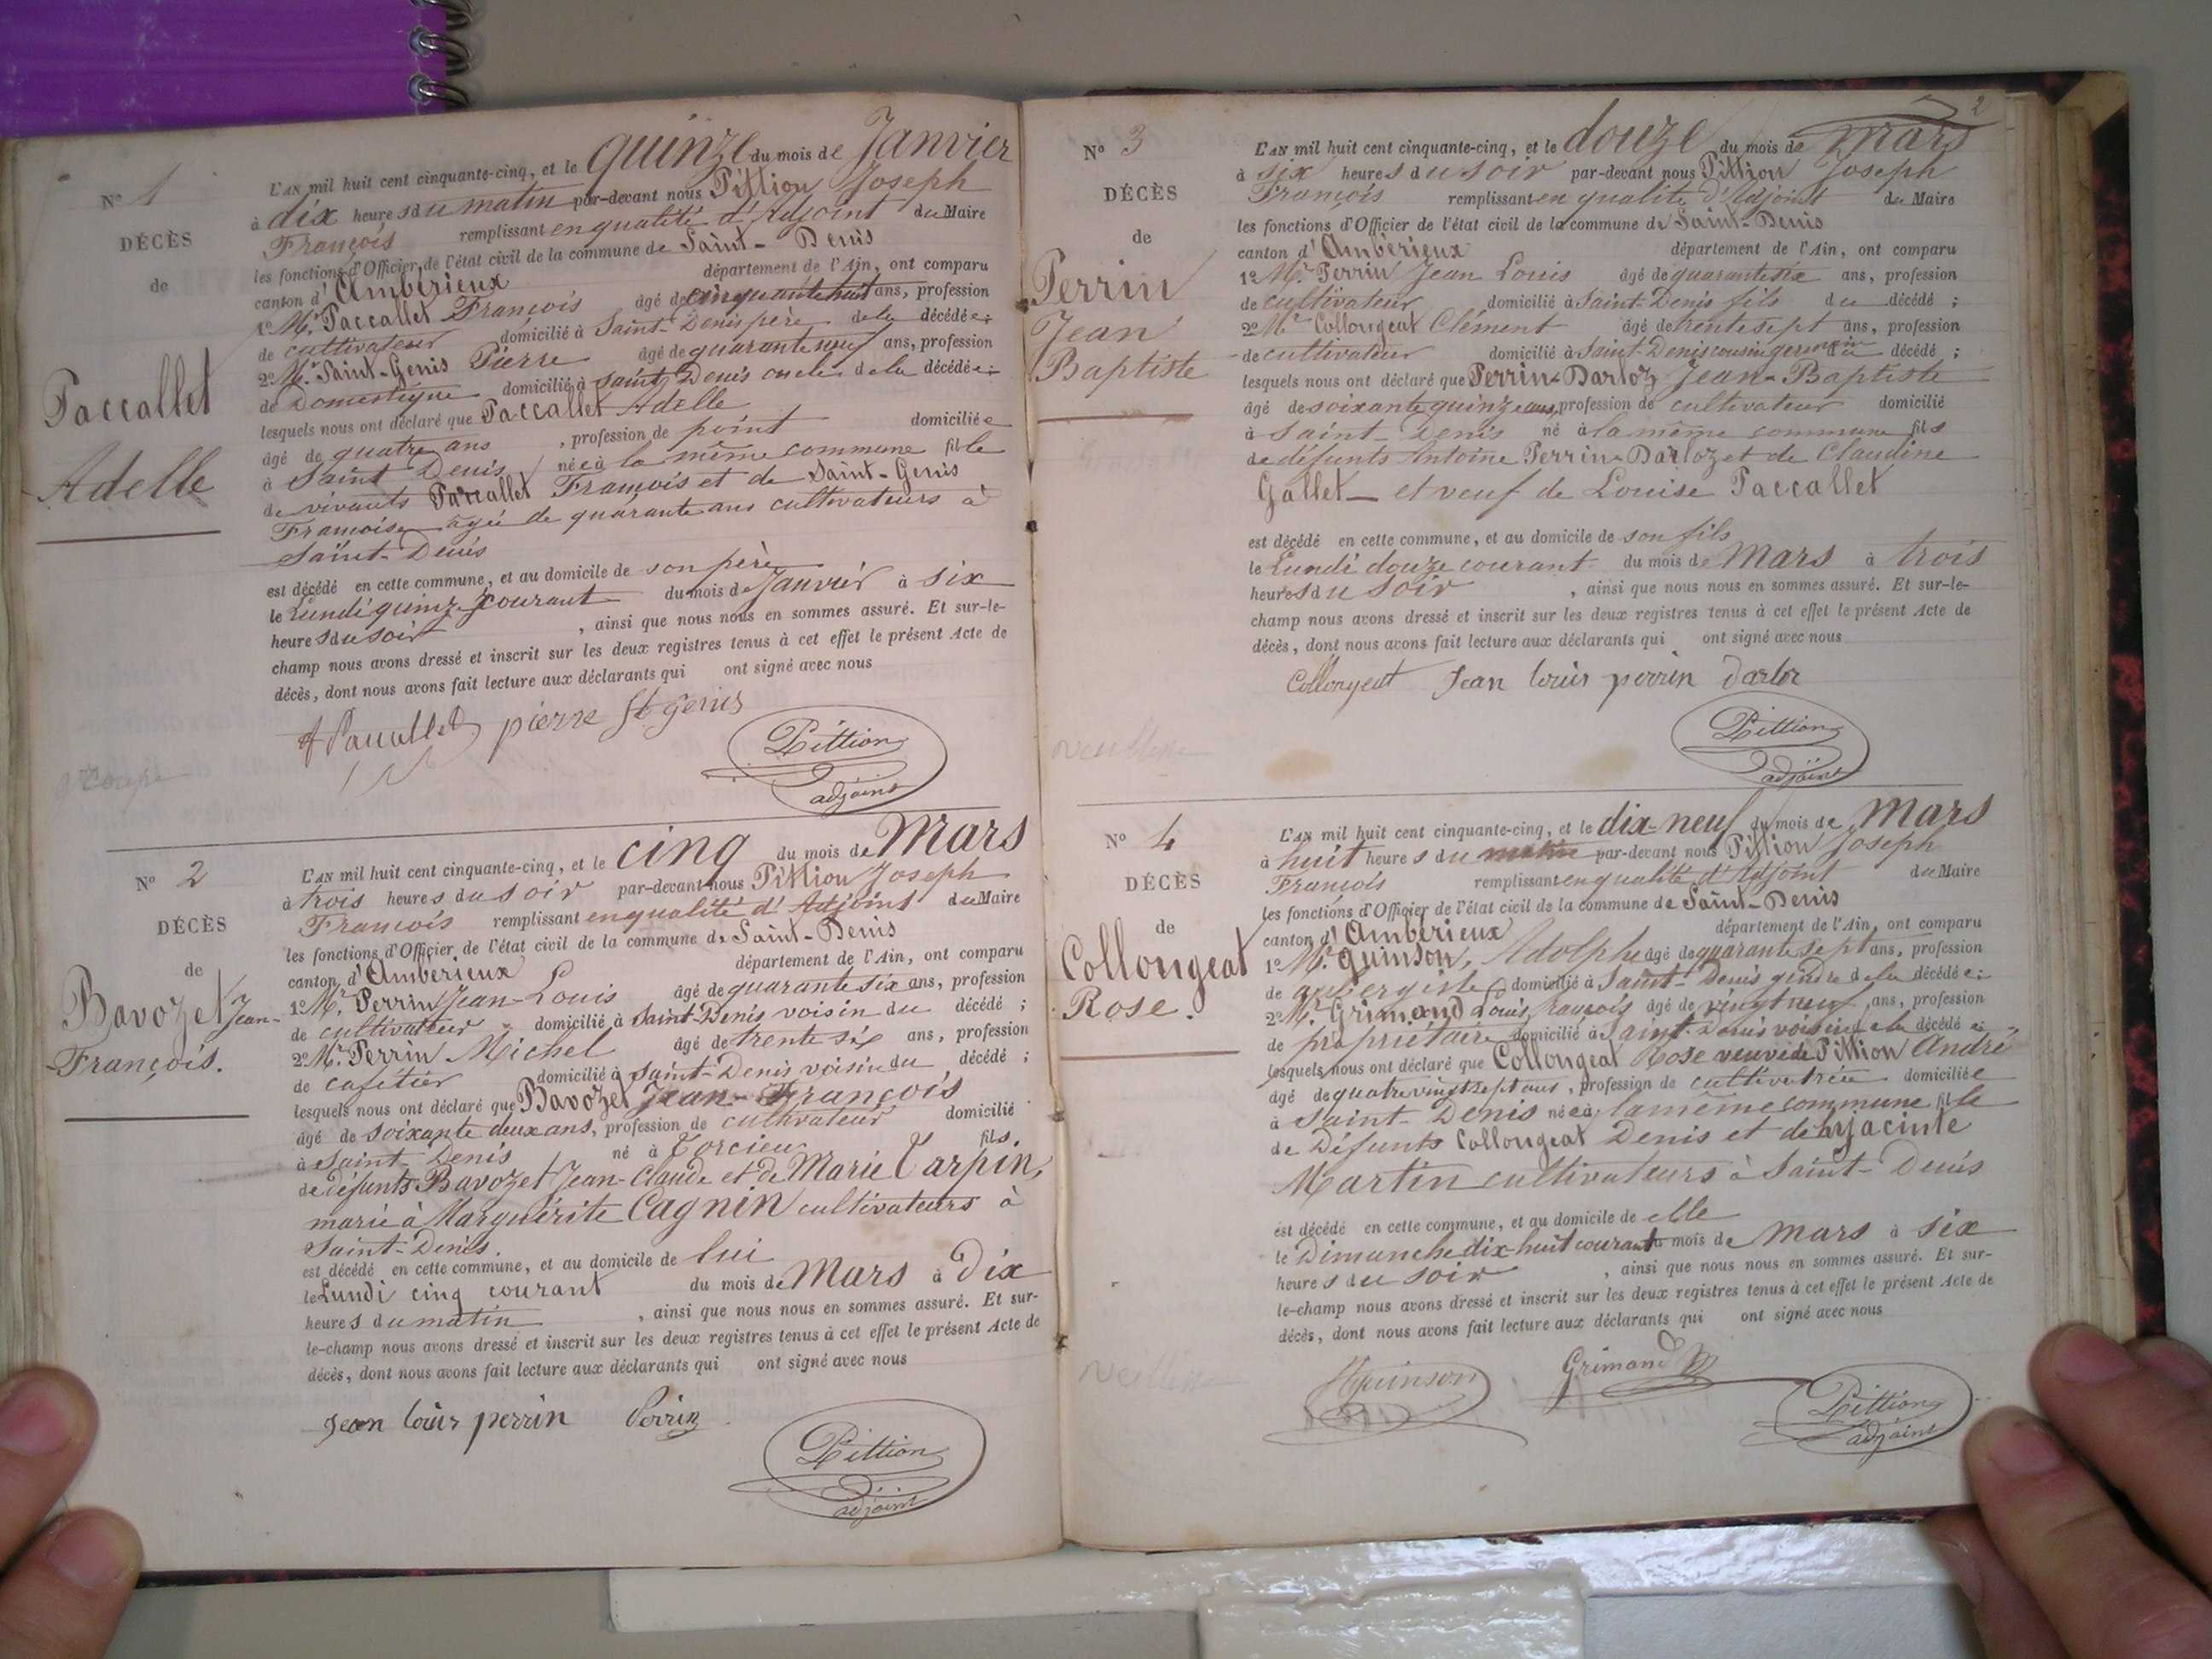 N° 1
DÉCÈS
de
Paccallet
Adelle
L'AN mil huit cent cinquante-cinq, et le quinze du mois de Janvier
à dix heures du matin par-devant nous Pittion Joseph
François remplissant en qualité d'Adjoint du Maire
les fonctions d'Officier de l'état civil de la commune de Saint-Denis
canton d'Ambérieux département de l'Ain, ont comparu
1° Mr. Paccallet François âgé de cinquante huit ans, profession
de cultivateur domicilié à Saint-Denis père de la décédée;
2° Mr. Saint-Genis Pierre âgé de quarante neuf ans, profession
de Domestique domicilié à Saint Denis oncle de la décédée;
lesquels nous ont déclaré que Paccallet Adelle
âgé de quatre ans, profession de point domiciliée
à Saint Denis née à la même commune fille
de vivants Paccallet François et de Saint-Genis
Françoise agée de quarante ans cultivateurs à
Saint-Denis
est décédé en cette commune, et au domicile de son père
le Lundi quinze courant du mois de Janvier à six
heures du soir, ainsi que nous nous en sommes assuré. Et sur-le-
champ nous avons dressé et inscrit sur les deux registres tenus à cet effet le présent Acte de
décès, dont nous avons fait lecture aux déclarants qui ont signé avec nous
pierre St genis
Pittion
adjoint
N° 2
DÉCÈS
de
Bavozet Jean-
François.
L'AN mil huit cent cinquante-cinq, et le cinq du mois de Mars
à trois heures du soir par-devant nous Pittion Joseph
François remplissant en qualité d'Adjoint du Maire
les fonctions d'Officier de l'état civil de la commune de Saint-Denis
canton d'Ambérieux département de l'Ain, ont comparu
1° Mr. Perrin Jean-Louis âgé de quarante six ans, profession
de cultivateur domicilié à Saint-Denis voisin du décédé;
2° Mr. Perrin Michel âgé de trente six ans, profession
de cafétier domicilié à Saint-Denis voisin du décédé;
lesquels nous ont déclaré que Bavozet Jean-François
âgé de soixante deux ans, profession de cultivateur domicilié
à Saint-Denis né à Torcieu fils.
de défunts Bavozet Jean-Claude et de Marie Carpin,
marié à Marguérite Cagnin cultivateurs à
Saint-Denis.
est décédé en cette commune, et au domicile de lui
le Lundi cinq courant du mois de Mars à Dix
heures du matin, ainsi que nous nous en sommes assuré. Et sur-
le-champ nous avons dressé et inscrit sur les deux registres tenus à cet effet le présent Acte de
décès, dont nous avons fait lecture aux déclarants qui ont signé avec nous
Jean louis perrin Perrin
Pittion
adjoint
2
N° 3
DÉCÈS
de
Perrin
Jean
Baptiste
L'AN mil huit cent cinquante-cinq, et le douze du mois de mars
à six heures du soir par-devant nous Pittion Joseph
François remplissant en qualité d'Adjoint du Maire
les fonctions d'Officier de l'état civil de la commune de Saint-Denis
canton d'Ambérieux département de l'Ain, ont comparu
1° Mr. Perrin Jean Louis âgé de quarante six ans, profession
de cultivateur domicilié à Saint-Denis fils du décédé;
2° Mr Collongeat Clément âgé de trente sept ans, profession
de cultivateur domicilié à Saint-Denis cousin germain du décédé;
lesquels nous ont déclaré que Perrin-Darloz Jean-Baptiste
âgé de soixante quinze ans, profession de cultivateur domicilié
à Saint-Denis né à la même commune fils
de défunts Antoine Perrin-Darloz et de Claudine
Gallet et veuf de Louise Paccallet
est décédé en cette commune, et au domicile de son fils
le Lundi douze courant du mois de Mars à trois
heures du soir, ainsi que nous nous en sommes assuré. Et sur-le-
champ nous avons dressé et inscrit sur les deux registres tenus à cet effet le présent Acte de
décès, dont nous avons fait lecture aux déclarants qui ont signé avec nous
Collongeat Jean louis perrin darloz
Pittion
adjoint
N° 4
DÉCÈS
de
Collongeat
Rose.
L'AN mil huit cent cinquante-cinq, et le dix-neuf du mois de Mars
à huit heures du matin par-devant nous Pittion Joseph
François remplissant en qualité d'Adjoint du Maire
les fonctions d'Officier de l'état civil de la commune de Saint-Denis
canton d'Ambérieux département de l'Ain, ont comparu
1° Mr. Quinson, Adolphe âgé de quarante sept ans, profession
de aubergiste domicilié à Saint-Denis gendre de la décédée;
2° Mr. Grimand Louis françois âgé de vingt neuf ans, profession
de propriétaire domicilié à Saint-Denis voisin de la décédée;
lesquels nous ont déclaré que Collongeat Rose veuve de Pittion André
âgé de quatre vingt sept ans, profession de cultivatrice domiciliée
à Saint-Denis née à la même commune fille
de Défunts Collongeat Denis et de hyacinte
Martin cultivateurs à Saint-Denis
est décédé en cette commune, et au domicile de elle
le Dimanche dix-huit courant du mois de Mars à six
heures du soir, ainsi que nous nous en sommes assuré. Et sur-
le-champ nous avons dressé et inscrit sur les deux registres tenus à cet effet le présent Acte de
décès, dont nous avons fait lecture aux déclarants qui ont signé avec nous
Quinson Grimand
Pittion
adjoint